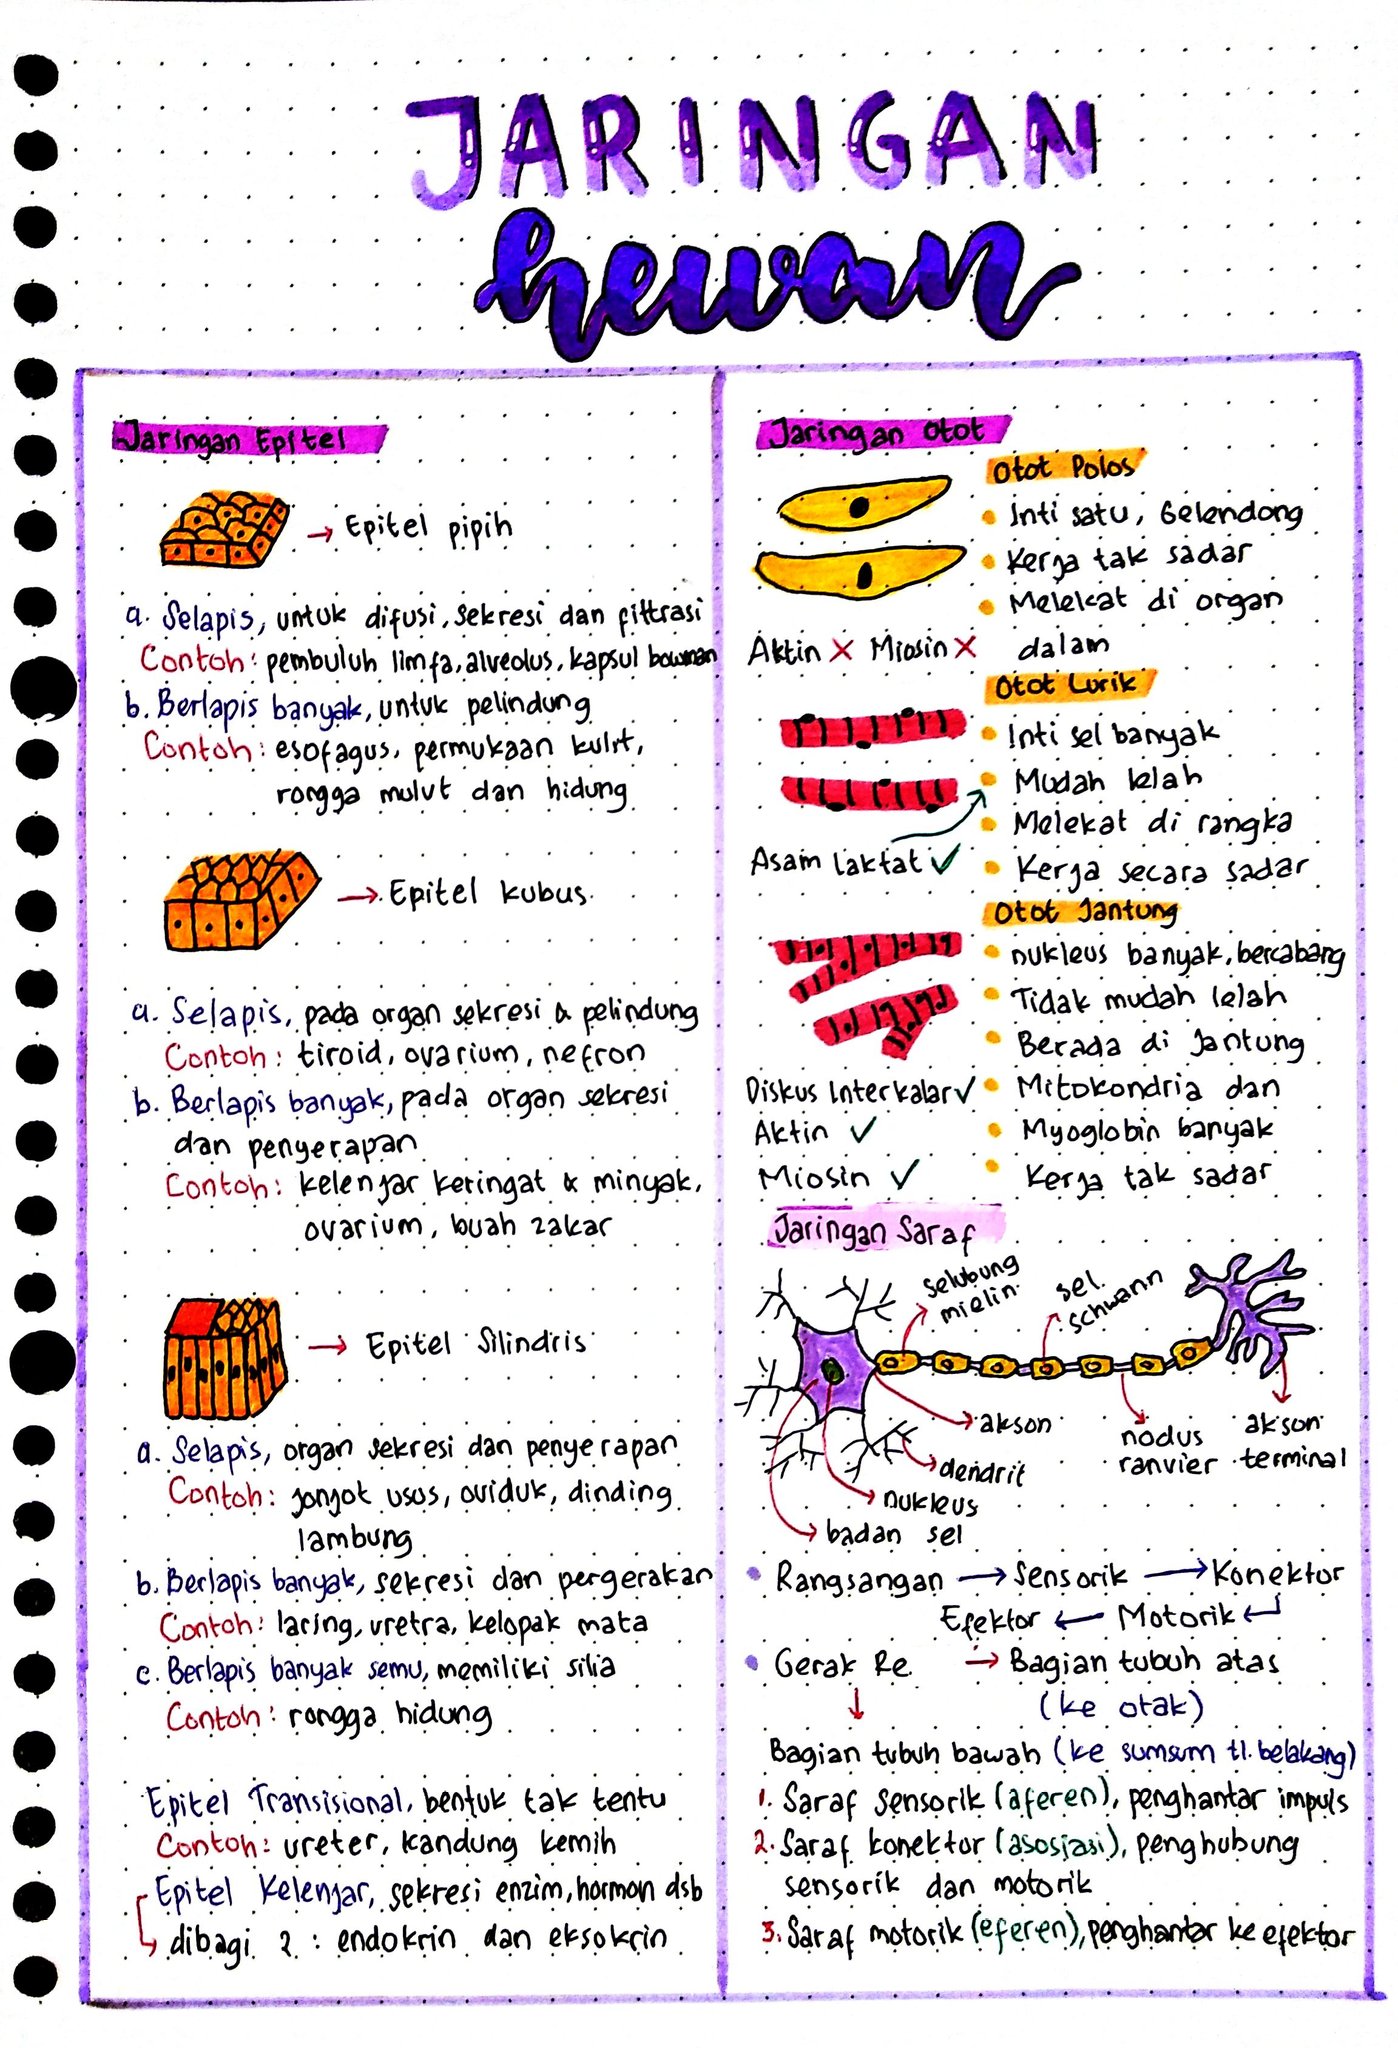 JARINGAN
hewan
Jaringan Epitel
→ Epitel pipih
a. Selapis, untuk difusi, sekresi dan filtrasi
Contoh: pembuluh limfa, alveolus, kapsul bowman
b. Berlapis banyak, untuk pelindung
Contoh: esofagus, permukaan kulit,
rongga mulut dan hidung
→ Epitel kubus
a. Selapis, pada organ sekresi & pelindung
Contoh: tiroid, ovarium, nefron
b. Berlapis banyak, pada organ sekresi
dan penyerapan
Contoh: kelenjar keringat & minyak,
ovarium, buah zakar
→ Epitel Silindris
a. Selapis, organ sekresi dan penyerapan
Contoh: jonjot usus, oviduk, dinding
lambung
b. Berlapis banyak, sekresi dan pergerakan
Contoh: laring, uretra, kelopak mata
c. Berlapis banyak semu, memiliki silia
Contoh: rongga hidung
Epitel Transisional, bentuk tak tentu
Contoh: ureter, kandung kemih
Epitel Kelenjar, sekresi enzim, hormon dsb
→ dibagi 2 : endokrin dan eksokrin
Jaringan Otot
Otot Polos
• Inti satu, Gelendong
• Kerja tak sadar
• Melekat di organ
dalam
Aktin ✗ Miosin ✗
Otot Lurik
• Inti sel banyak
• Mudah lelah
• Melekat di rangka
• Kerja secara sadar
Asam laktat ✓
Otot Jantung
• nukleus banyak, bercabang
• Tidak mudah lelah
• Berada di Jantung
• Mitokondria dan
• Myoglobin banyak
• Kerja tak sadar
Diskus Interkalar ✓
Aktin ✓
Miosin ✓
Jaringan Saraf
selubung
mielin
sel
schwann
akson
nodus
ranvier
akson
terminal
dendrit
nukleus
badan sel
• Rangsangan → Sensorik → Konektor
Efektor ← Motorik ↵
• Gerak Re. → Bagian tubuh atas
(ke otak)
↓
Bagian tubuh bawah (ke sumsum tl. belakang)
1. Saraf sensorik (aferen), penghantar impuls
2. Saraf konektor (asosiasi), penghubung
sensorik dan motorik
3. Saraf motorik (eferen), penghantar ke efektor